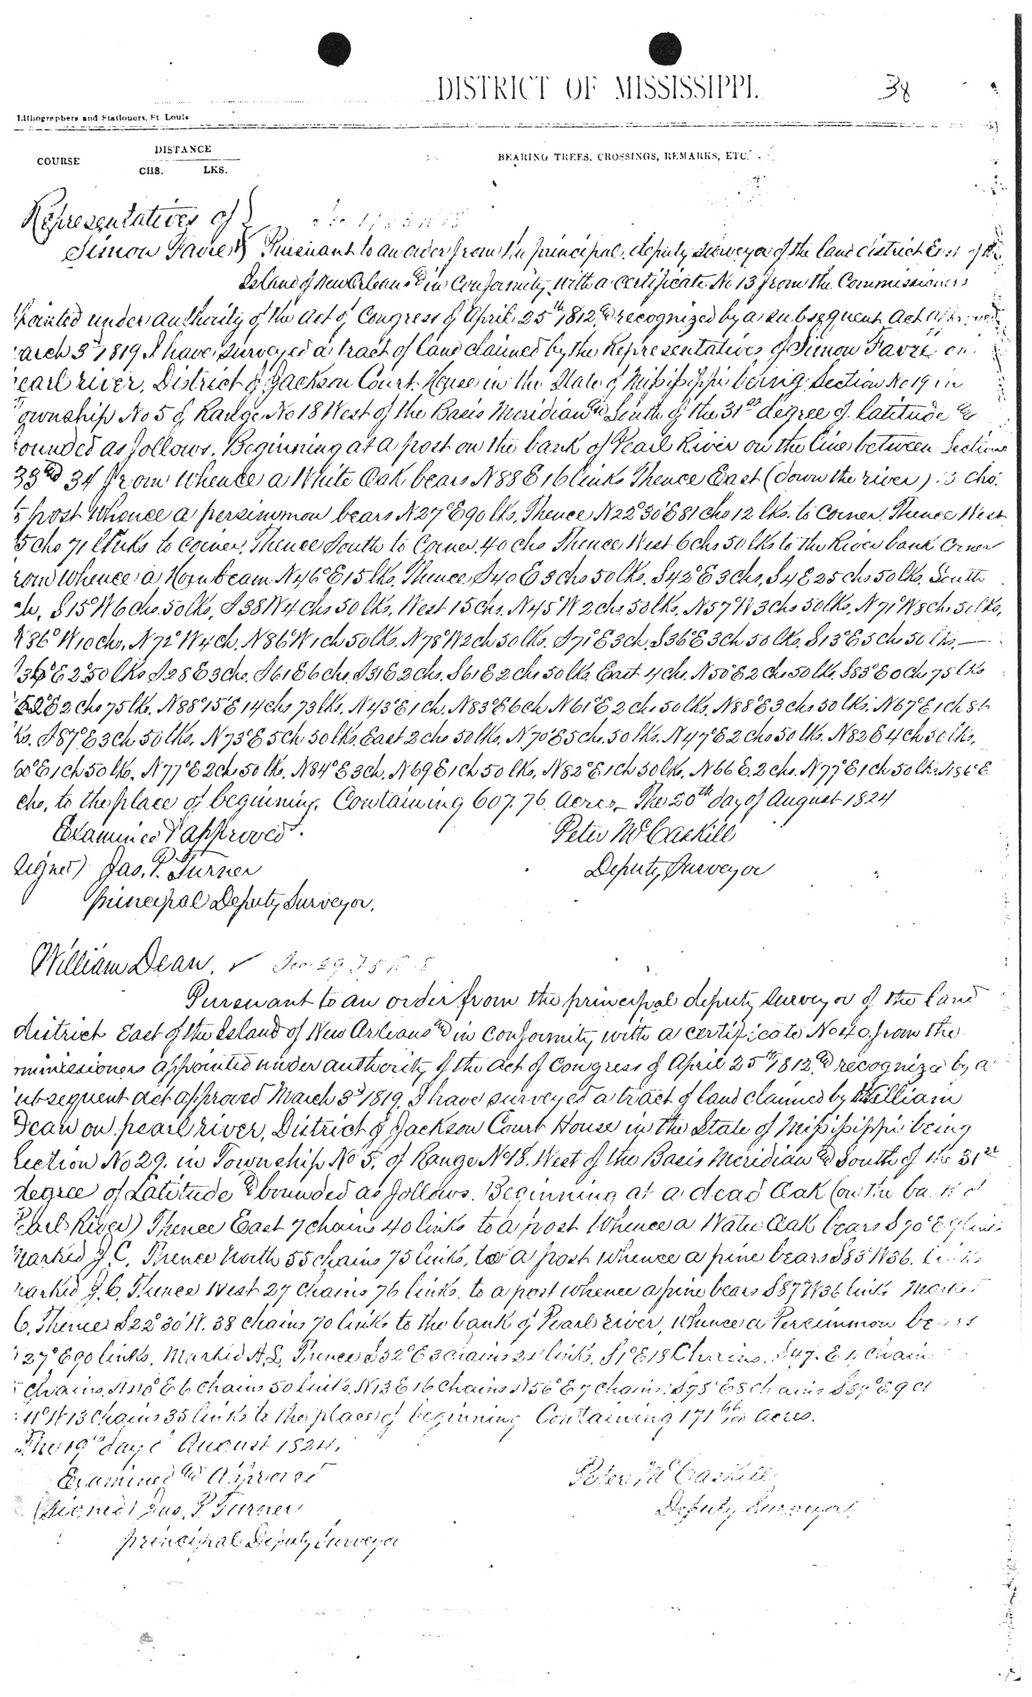 DISTRICT OF MISSISSIPPI.
38
Lithographers and Stationers, St Louis
COURSE
DISTANCE
CHS. LKS.
BEARING TREES, CROSSINGS, REMARKS, ETC.
Representatives of
Simon Favre Pursuant to an order from the principal deputy surveyor of the land district East of the
Island of New Orleans & in conformity with a certificate No 13 from the Commissioners
pointed under authority of the Act of Congress of April 25th 1812, & recognized by a subsequent act approved
arch 3d 1819 I have surveyed a tract of land claimed by the Representatives of Simon Favre on
earl river, District of Jackson Court House in the State of Mississippi being Section No 19 in
ownship No 5 of Range No 18 West of the Basis Meridian & South of the 31st degree of latitude &
ounded as follows. Beginning at a post on the bank of Pearl River on the line between Section
33 & 34 from Whence a White Oak bears N88E 16 links Thence East (down the river) chs.
post Whence a persimmon bears N27°E 90 lks, Thence N22°30'E 81 chs 12 lks. to corner. Thence West
5 chs 71 links to corner, Thence South to Corner 40 chs Thence West 6 chs 50 lks to the River bank corner
rom Whence a Hornbeam N46°E 15 lks, Thence S40E 3 chs 50 lks, S42°E 3 chs, S4E 25 chs 50 lks, South
ch, S15°W 6 chs. 50 lks, S38W 4 chs 50 lks, West 15 chs, N45°W 2 chs 50 lks, N57°W 3 chs 50 lks, N71°W 8 chs 50 lks,
N86°W 10 chs, N72°W 4 ch, N86°W 1 ch 50 lks. N78°W 2 ch 50 lks. S71°E 3 ch, S36°E 3 ch 50 lks S13°E 5 ch 50 lks.
S36°E 2 50 lks S28E 3 ch, S61E 6 chs, S31E 2 chs. S61E 2 chs 50 lks East 4 chs, N50E 2 chs 50 lks, S85°E 0 chs 75 lks
52°E 2 chs 75 lks, N88°15'E 14 chs 73 lks, N43°E 1 ch, N83°E 6 ch N61°E, 2 chs 50 lks, N88°E 3, chs 50 lks, N67°E 1 ch
lks, S87°E 3 ch 50 lks, N73°E 5 ch 50 lks East 2 chs 50 lks, N70°E 5 ch. 50 lks, N47°E 2 chs 50 lks. N82E 4 ch 50 lks,
60°E 1 ch 50 lks, N77°E 2 chs 50 lks, N84°E 3 ch, N69E 1 ch 50 lks, N82°E 1 ch 50 lks, N66E. 2 chs. N77°E 1 ch 50 lks
chs, to the place of beginning, Containing 607.76 acres The 20th day of August 1824
Examined & approved
Peter McCaskill
signed) Jas. P. Turner
Deputy Surveyor
principal Deputy Surveyor.
William Dean. Sec 29 T5 R18
Pursuant to an order from the principal deputy surveyor of the land
district East of the Island of New Orleans & in conformity with a certificate No 40 from the
mmissioners appointed under authority of the Act of Congress of April 25th 1812 & recognized by a
ubsequent act approved March 3d 1819. I have surveyed a tract of land claimed by William
Dean on pearl river, District of Jackson Court House in the State of Mississippi being
Section No 29. in Township No 5. of Range No 18. West of the Basis Meridian & South of the 31st
degree of Latitude & bounded as follows. Beginning at a dead Oak (on the bank of
Pearl River) Thence East 7 chains 40 links to a post Whence a Water Oak bears S70°E 9 links
Marked J.C. Thence North 55 chains 75 links, to a post Whence a pine bears S85 W36. links
marked J.C. Thence West 27 chains 76 links. to a post whence a pine bears S87°W 36 links Marked
C. Thence S22°30'W. 38 chains 70 links to the bank of Pearl river, Whence a Persimmon bears
27°E 90 links, Marked A.L Thence S32°E 3 chains links, S1°E 18 Chains, S47.E chain
chains, E 6 chains 50 links, N13E 16 chains N56°E 7 chains. S75°E 8 chains S37°E 9 ch
11°W 13 chains 35 links to the place of beginning Containing 171 acres.
The 19th day of August 1824.
Examined & Approved
Peter McCaskill
(Signed) Jas. P Turner
Deputy Surveyor
principal Deputy Surveyor